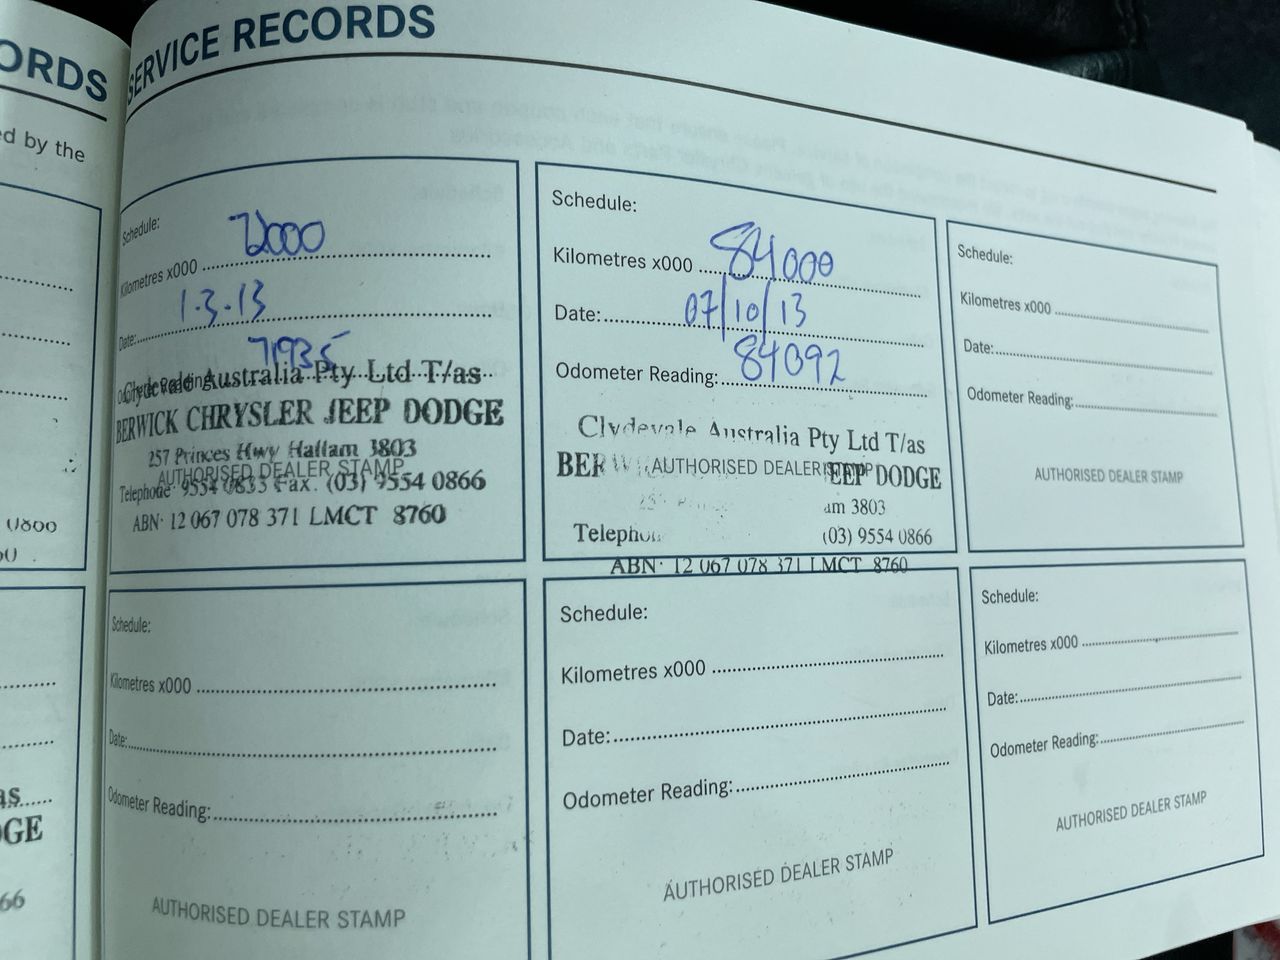 ORDS
ed by the
0800
as
GE
66
SERVICE RECORDS
Schedule:
Kilometres x000 72000
Date: 1.3.13
Odometer Reading: 71935
Clydevale Australia Pty Ltd T/as
BERWICK CHRYSLER JEEP DODGE
257 Princes Hwy Hallam 3803
AUTHORISED DEALER STAMP
Telephone 9554 0833 Fax. (03) 9554 0866
ABN: 12 067 078 371 LMCT 8760
Schedule:
Kilometres x000 84000
Date: 07/10/13
Odometer Reading: 84092
Clydevale Australia Pty Ltd T/as
BERW AUTHORISED DEALER STAMP EEP DODGE
am 3803
Telephon (03) 9554 0866
ABN: 12 067 078 371 LMCT 8760
Schedule:
Kilometres x000
Date:
Odometer Reading:
AUTHORISED DEALER STAMP
Schedule:
Kilometres x000
Date:
Odometer Reading:
AUTHORISED DEALER STAMP
Schedule:
Kilometres x000
Date:
Odometer Reading:
AUTHORISED DEALER STAMP
Schedule:
Kilometres x000
Date:
Odometer Reading:
AUTHORISED DEALER STAMP